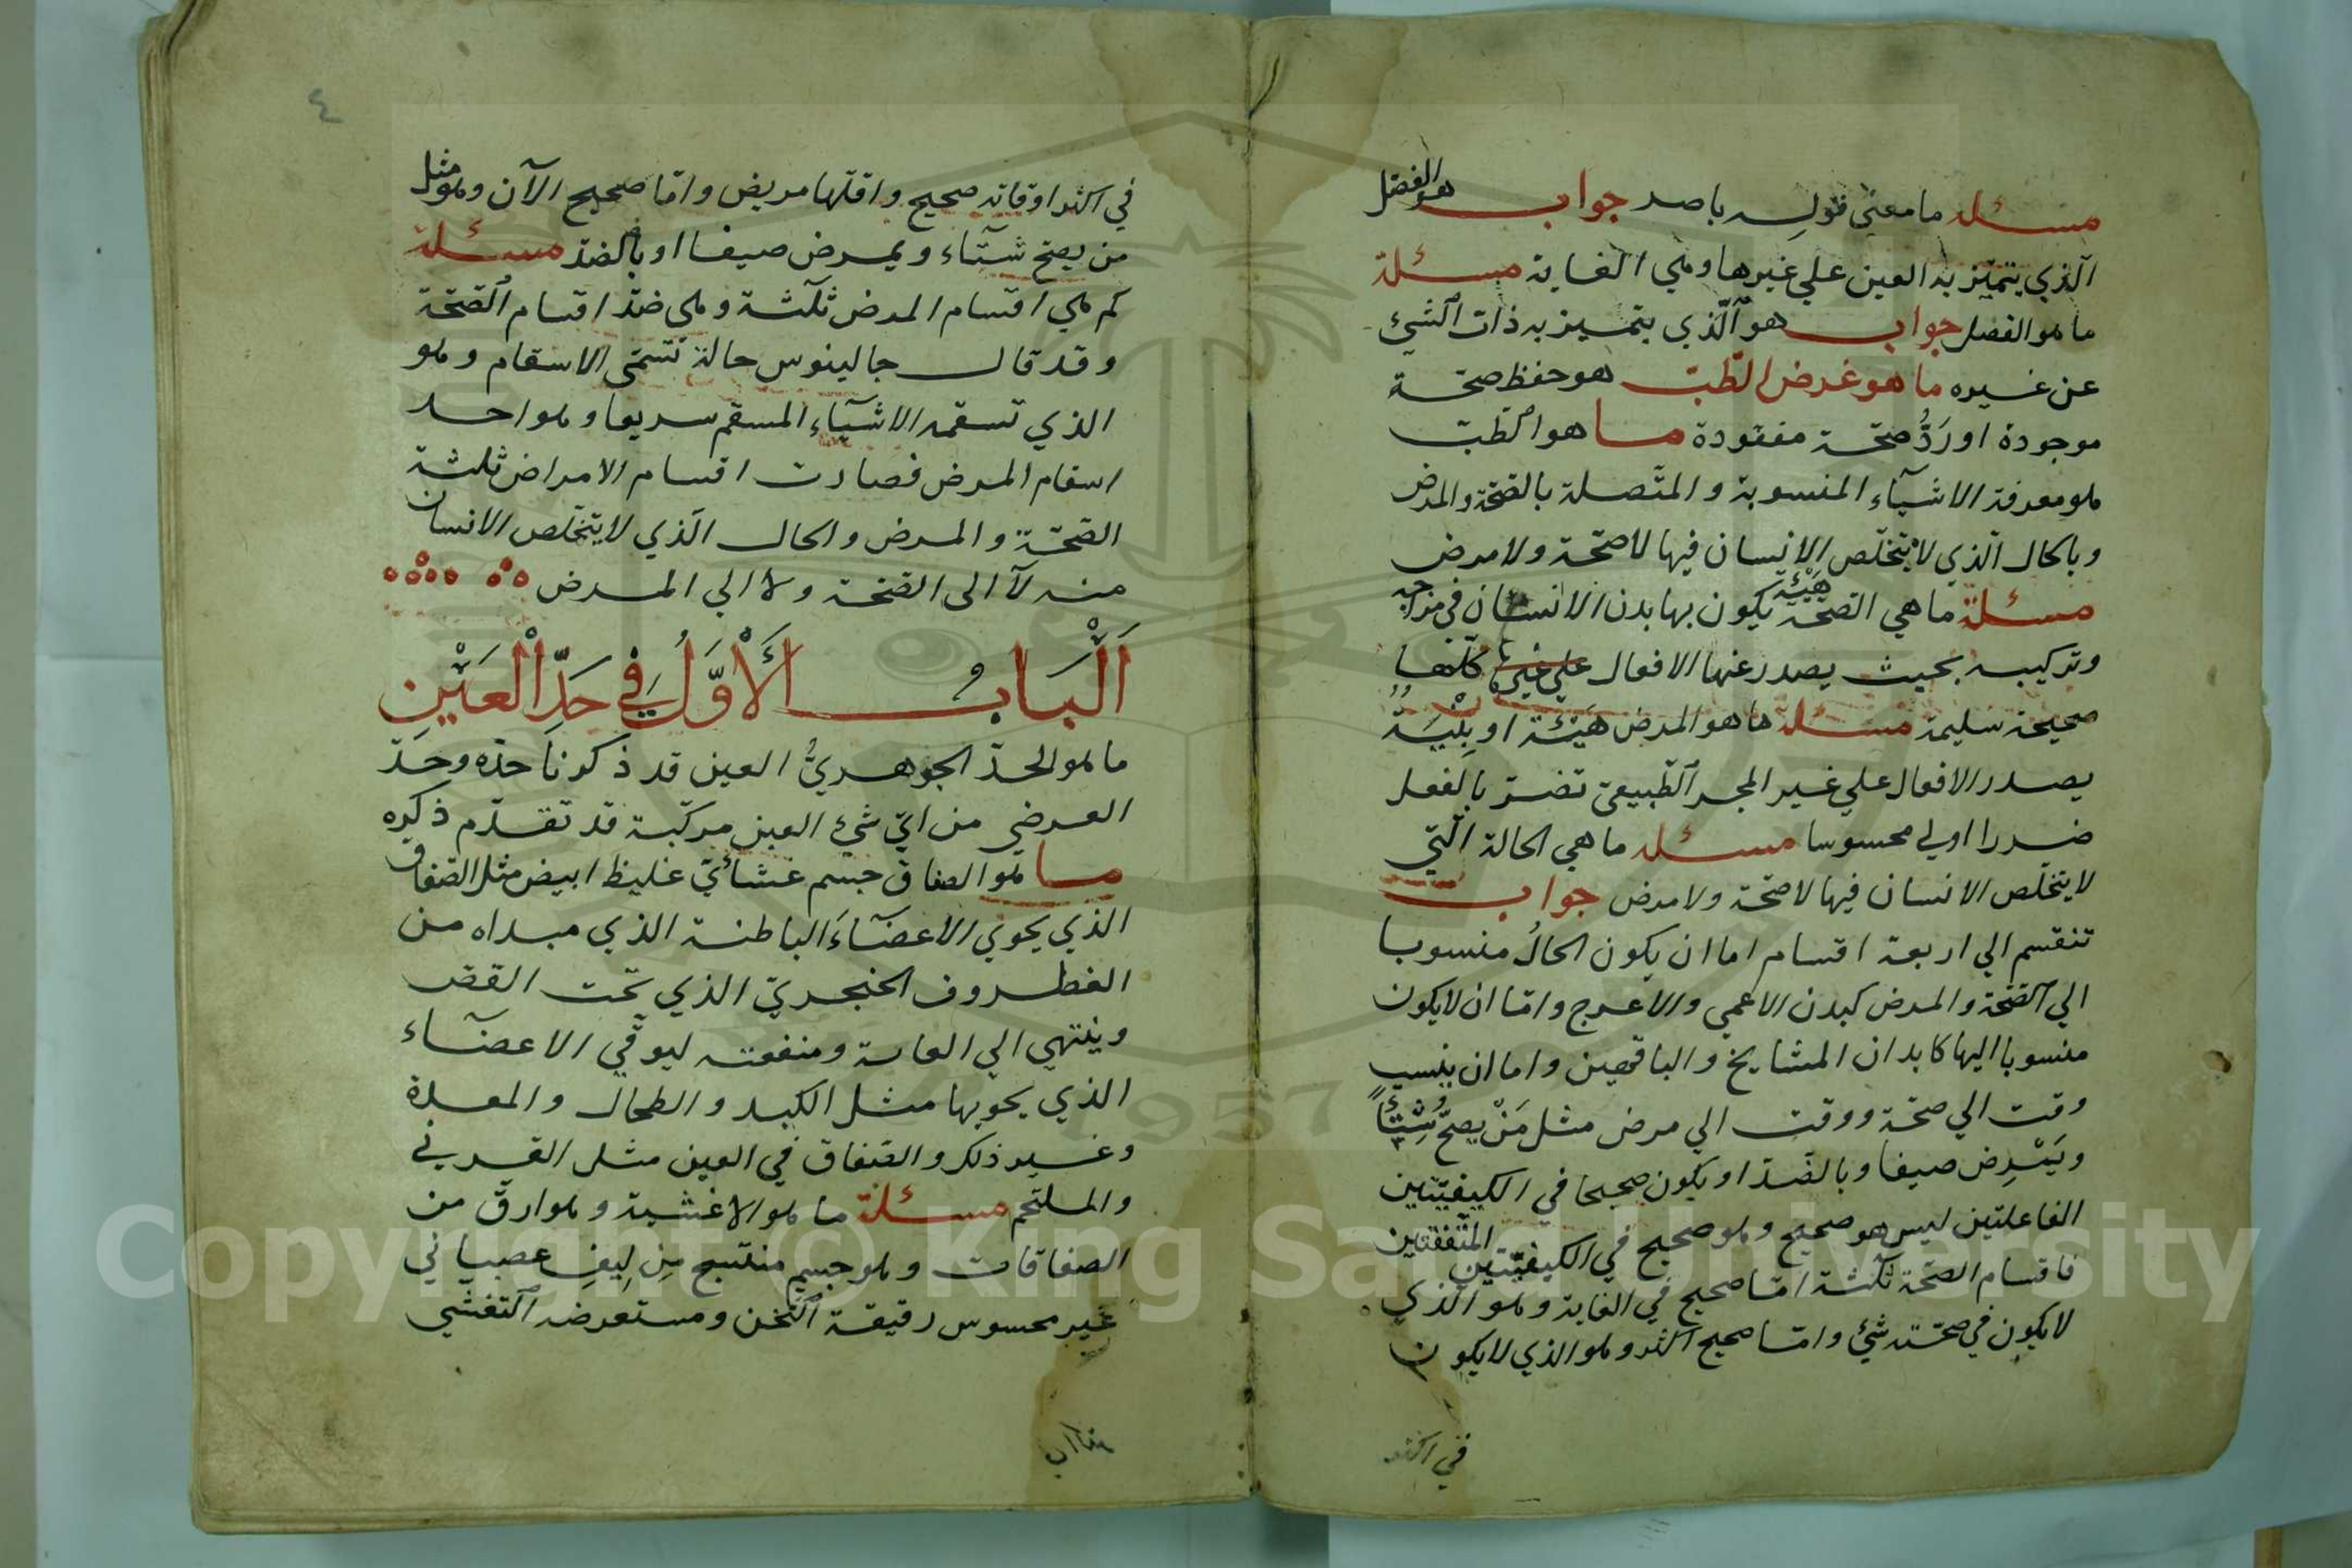 مسئله ما معني قوله باصر جواب هو الفصل
الذي يتميّز به العين علي غيرها وهي الغاية مسئلة
ما هو الفصل جواب هو الّذي يتميز به ذات الشيئ
عن غيره ما هو غرض الطّبّ هو حفظ صحّة
موجودة او رَدُّ صحّة مفقودة ما هو الطبّ
هو معرفة الاشيآء المنسوبة والمتّصلة بالصّحّة والمرض
وبالحال الّذي لا يتخلّص الانسان فيها لا صحّة ولا مرض
مسئلة ما هي الصحّة هَيْئة يكون بها بدن الانسان في مزاجه
وتركيبه بحيث يصدر عنها الافعال علي غير كلّها
صحيحة سليمة مسئلة ما هو المرض هَيْئة او بِنْيَةٌ
يصدر الافعال علي غير المجر الطّبيعيّ تضرّ بالفعل
ضررا اولي محسوسا مسئله ما هي الحالة الّتي
لا يتخلّص الانسان فيها لا صحّة ولا مرض جواب
تنقسم الي اربعة اقسام اما ان يكون الحالُ منسوبا
الي الصّحّة والمرض كبدن الاعمي والاعرج وامّا ان لا يكون
منسوبا اليها كابدان المشايخ والناقهين واما ان ينسب
وقت الي صحّة ووقت الي مرض مثل مَنْ يصحّ شِتٓاءً
ويَمْرِض صيفا وبالضّدّ او يكون صحيحا في الكيفيّتين
الفاعلتين ليس هو صحيح وهو صحيح في الكيفيّتين المنفعتين
فاقسام الصّحّة ثلٰثة امّا صحيح في الغاية وهو الّذي
لا يكون في صحّته شيئ وامّا صحيح اكثر وهو الذي لا يكون
في اكثر
٤
في اكثر اوقاته صحيح واقلّها مريض وامّا صحيح الآن وهو مثل
من يصحّ شتآء ويمرض صيفا او بالضدّ مسئلة
كم هي اقسام المرض ثلٰثة وهي ضدّ اقسام الصّحّة
وقد قال جالينوس حالة تسمّى الاسقام وهو
الذي تسقمه الاشيآء المسقم سريعا وهو احد
اسقام المرض فصارت اقسام الامراض ثلثة
الصّحّة والمرض والحال الّذي لا يتخلّص الانسان
منه لآ الى الصّحّة ولا الي المرض
اَلْبَابُ الْأَوَّلُ فِي حَدِّ الْعَيْنِ
ما هو الحدّ الجوهريُّ العين قد ذكرنا حدّه وحدّ
العرضي من ايّ شيئ العين مركّبة قد تقدّم ذكره
ما هو الصفاق جسم غشائيّ غليظ ابيض مثل الصّفاق
الذي يحوي الاعضآءَ الباطنة الذي مبداه من
الغطروف الخنجريّ الذي تحت القصّ
وينتهي الي العانة ومنفعته ليوقّي الاعضآء
الذي يحويها مثل الكبد والطحال والمعدة
وغير ذلك والصّفاق في العين مثل القرني
والملتحم مسئلة ما هو الاغشية وهو ارقّ من
الصفاقات وهو جسم منتسج مِن لِيفِ عصباني
غير محسوس رقيقة الثّخن ومستعرضه التغشّي